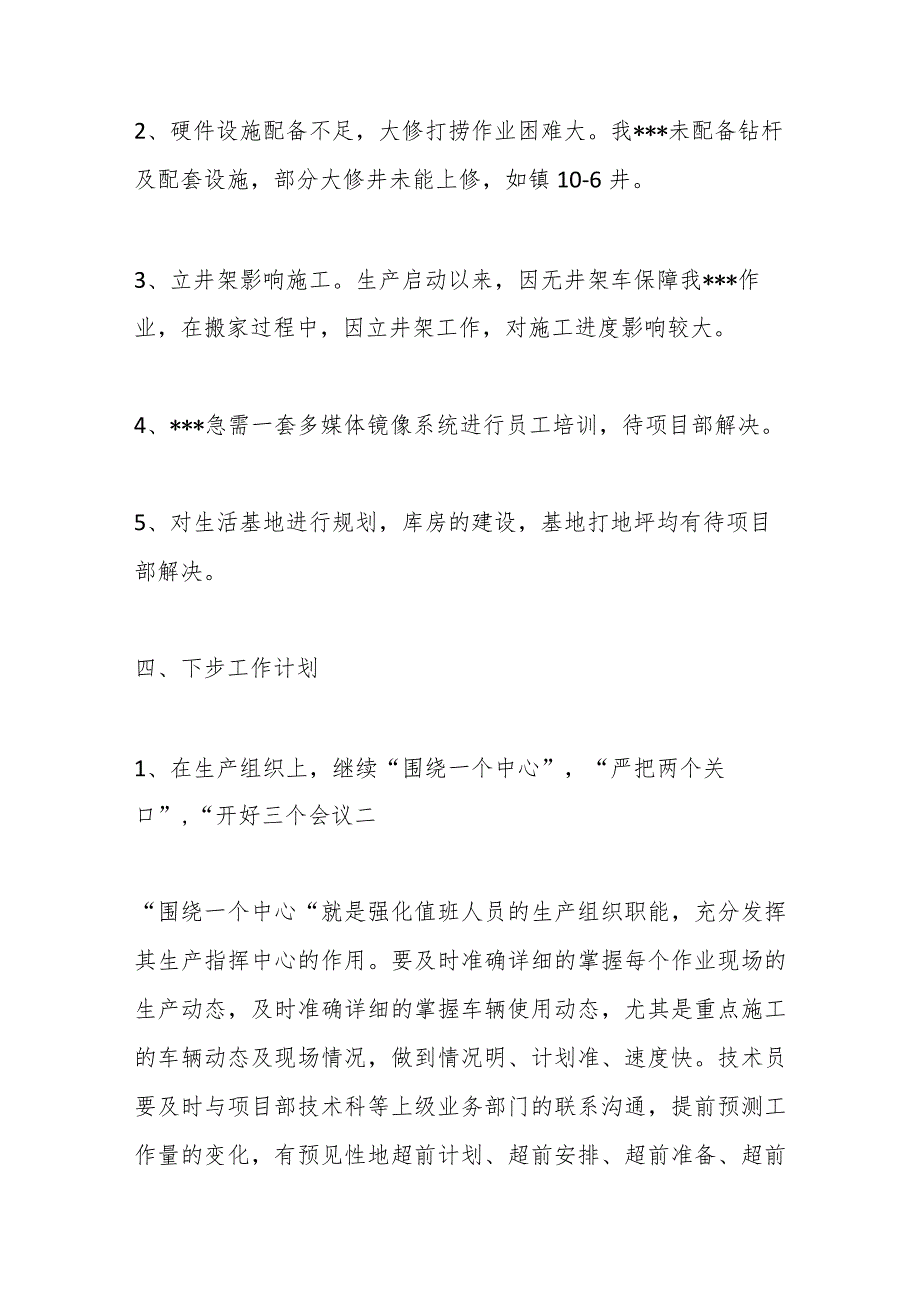 2、硬件设施配备不足，大修打捞作业困难大。我***未配备钻杆
及配套设施，部分大修井未能上修，如镇 10-6 井。
3、立井架影响施工。生产启动以来，因无井架车保障我***作
业，在搬家过程中，因立井架工作，对施工进度影响较大。
4、***急需一套多媒体镜像系统进行员工培训，待项目部解决。
5、对生活基地进行规划，库房的建设，基地打地坪均有待项目
部解决。
四、下步工作计划
1、在生产组织上，继续“围绕一个中心”，“严把两个关
口”,“开好三个会议二
“围绕一个中心“就是强化值班人员的生产组织职能，充分发挥
其生产指挥中心的作用。要及时准确详细的掌握每个作业现场的
生产动态，及时准确详细的掌握车辆使用动态，尤其是重点施工
的车辆动态及现场情况，做到情况明、计划准、速度快。技术员
要及时与项目部技术科等上级业务部门的联系沟通，提前预测工
作量的变化，有预见性地超前计划、超前安排、超前准备、超前